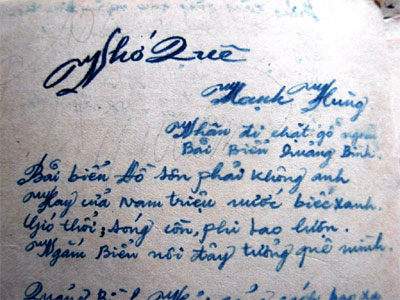 Nhớ Quê
Mạnh Hùng
Nhân đi chặt gỗ ngoài
Bải Biển Quảng Bình.
Bải biển Đồ sơn phải không anh
Hay cửa Nam triệu nước biếc xanh.
Gió thổi, sóng cồn, phi lao lướn.
Ngắm Biển nơi đây tưởng quê mình.
Quảng Bình